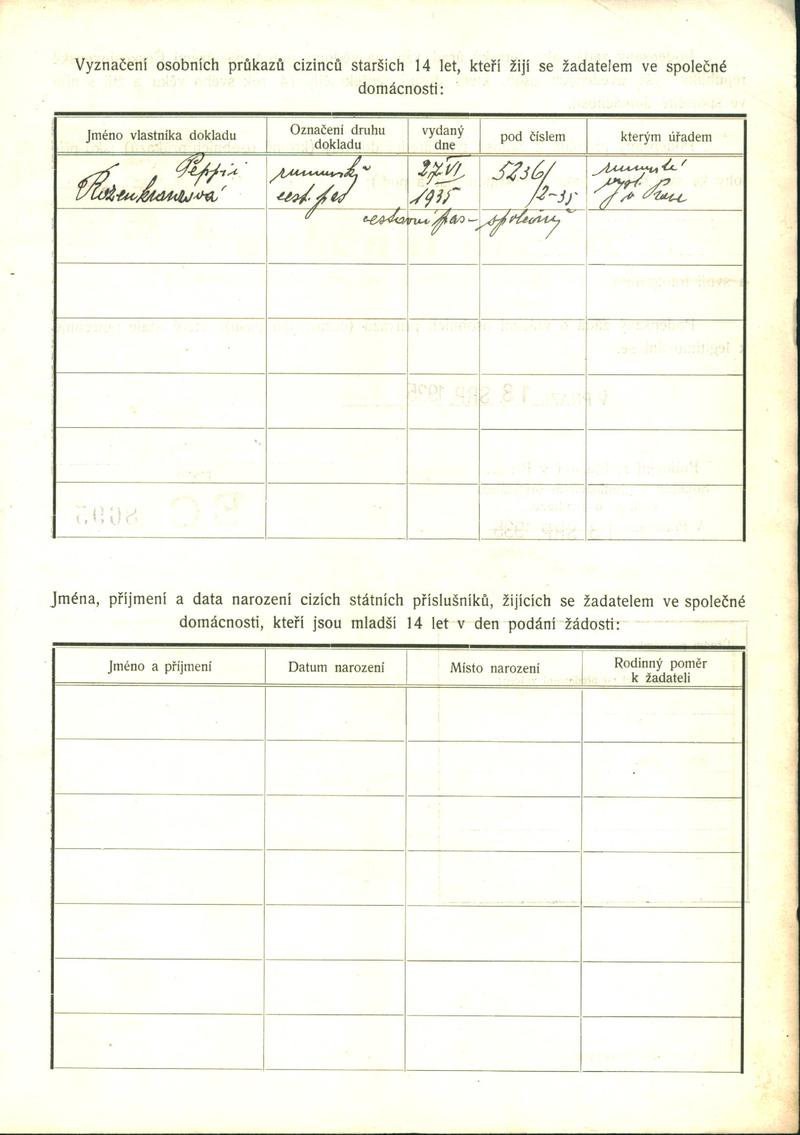 Vyznačení osobních průkazů cizinců starších 14 let, kteří žijí se žadatelem ve společné
domácnosti:
Jméno vlastníka dokladu
Označení druhu
dokladu
vydaný
dne
pod číslem
kterým úřadem
Peppii
Rosenkranzová
rumunský
cest. pas
27/VI
1935
5236/
2-35
v Praze
cestovní pas - společný
Jména, příjmení a data narození cizích státních příslušníků, žijících se žadatelem ve společné
domácnosti, kteří jsou mladší 14 let v den podání žádosti:
Jméno a příjmení
Datum narození
Místo narození
Rodinný poměr
k žadateli